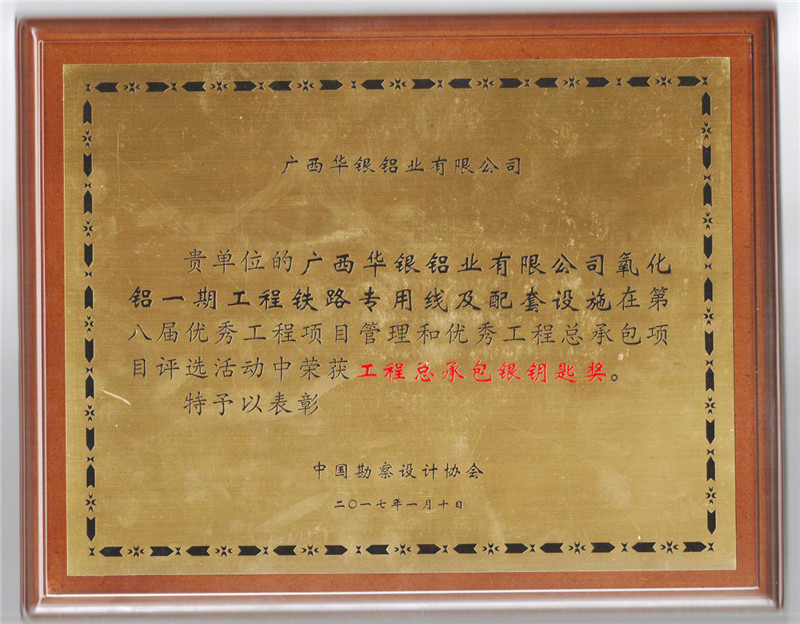 广西华银铝业有限公司
贵单位的广西华银铝业有限公司氧化
铝一期工程铁路专用线及配套设施在第
八届优秀工程项目管理和优秀工程总承包项
目评选活动中荣获工程总承包银钥匙奖。
特予以表彰
中国勘察设计协会
二〇一七年一月十日